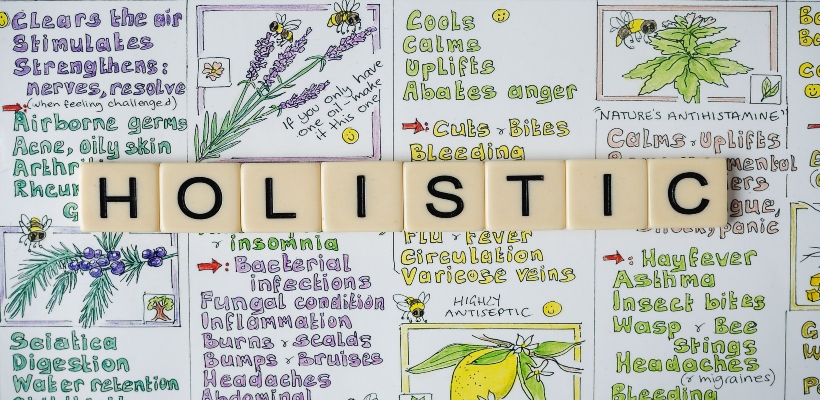 Clears the air
Stimulates
Strengthens:
nerves, resolve
(when feeling challenged)
Airborne germs
Acne, oily skin
If you only have
one oil - make
it this one!
Cools
Calms
Uplifts
Abates anger
Cuts & Bites
Bleeding
"NATURE'S ANTIHISTAMINE"
Calms & Uplifts
HOLISTIC
Sciatica
Digestion
Water retention
& insomnia
: Bacterial
infections
Fungal condition
Inflammation
Burns & scalds
Bumps & Bruises
Headaches
Abdominal
Flu & Fever
Circulation
Varicose veins
HIGHLY
ANTISEPTIC
: Hayfever
Asthma
Insect bites
Wasp & Bee
Stings
Headaches
(& migraines)
Bleeding